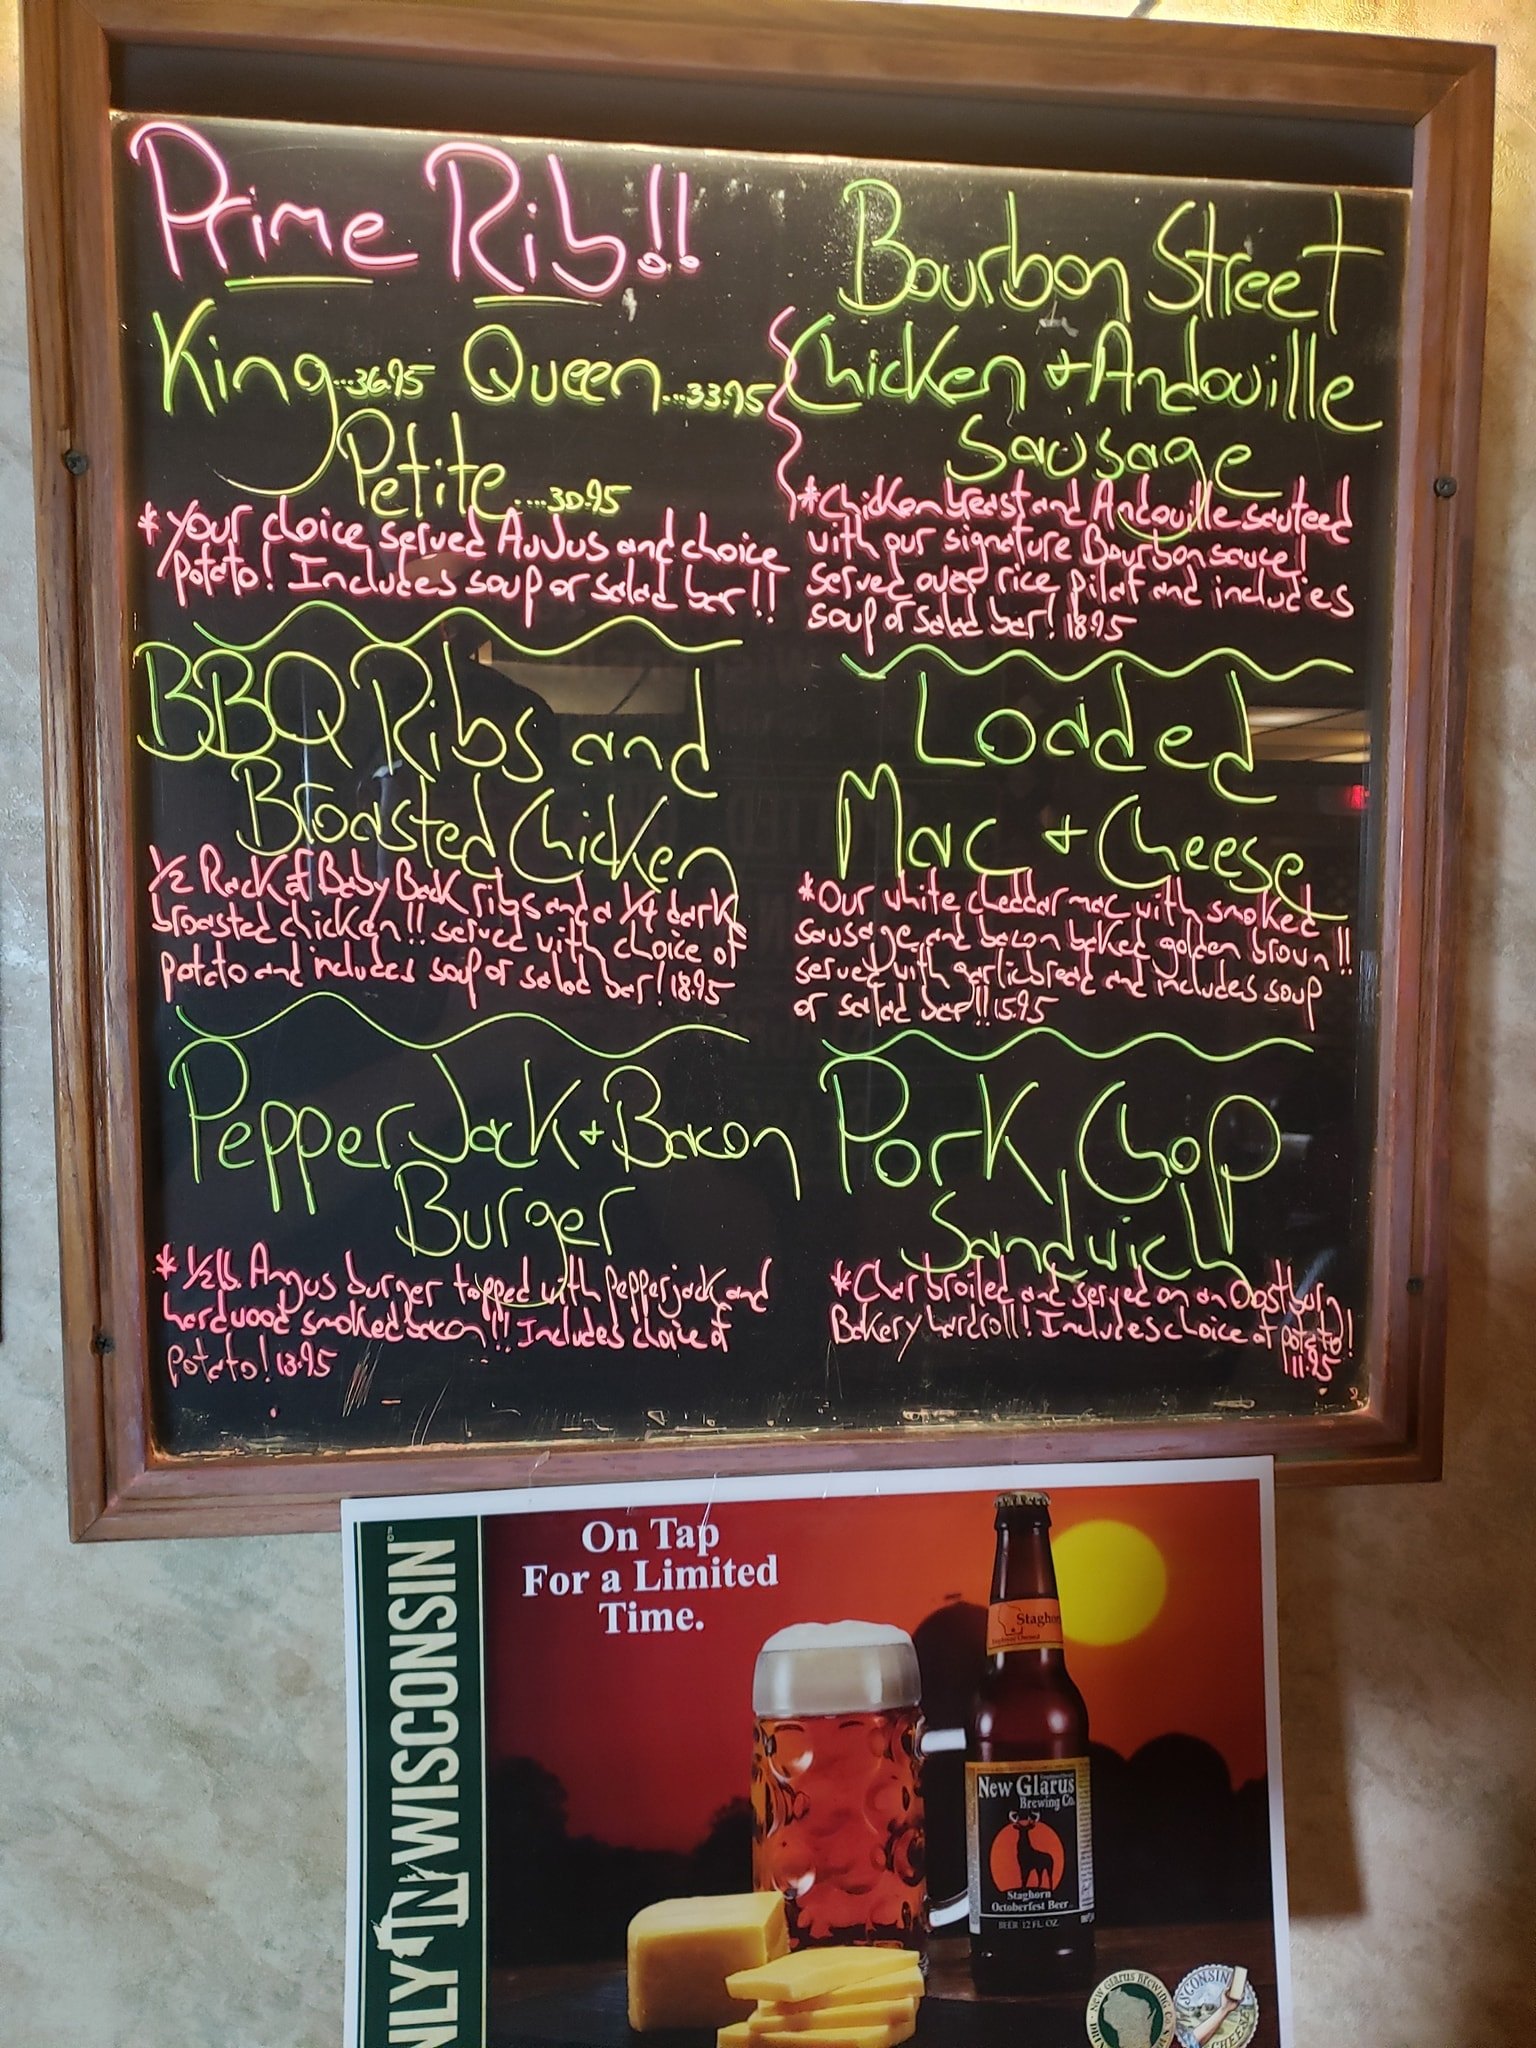 Prime Rib!!
King...36.95 Queen...33.95
Petite....30.95
*Your choice served AuJus and choice
potato! Includes soup or salad bar!!
BBQ Ribs and
Broasted Chicken
1/2 Rack of Baby Back ribs and a 1/4 dark
broasted chicken!! served with choice of
potato and includes soup or salad bar! 18.95
Pepper Jack + Bacon
Burger
* 1/2 lb. Angus burger topped with pepperjack and
hardwood smoked bacon!! Includes choice of
potato! 13.95
Bourbon Street
Chicken + Andouille
Sausage
*Chicken breast and Andouille sauteed
with our signature Bourbon sauce!
served over rice pilaf and includes
soup or salad bar! 18.95
Loaded
Mac + Cheese
*Our white cheddar mac with smoked
sausage and bacon baked golden brown!!
served with garlic bread and includes soup
or salad bar!! 15.95
Pork Chop
Sandwich
*Char broiled and served on an Oostburg
Bakery hardroll! Includes choice of potato!
11.95
NLY IN WISCONSIN
On Tap
For a Limited
Time.
Staghorn
New Glarus
Brewing Co.
Staghorn
Octoberfest Beer
BEER 12 FL. OZ.
NEW GLARUS BREWING CO
WISCONSIN
CHEESE